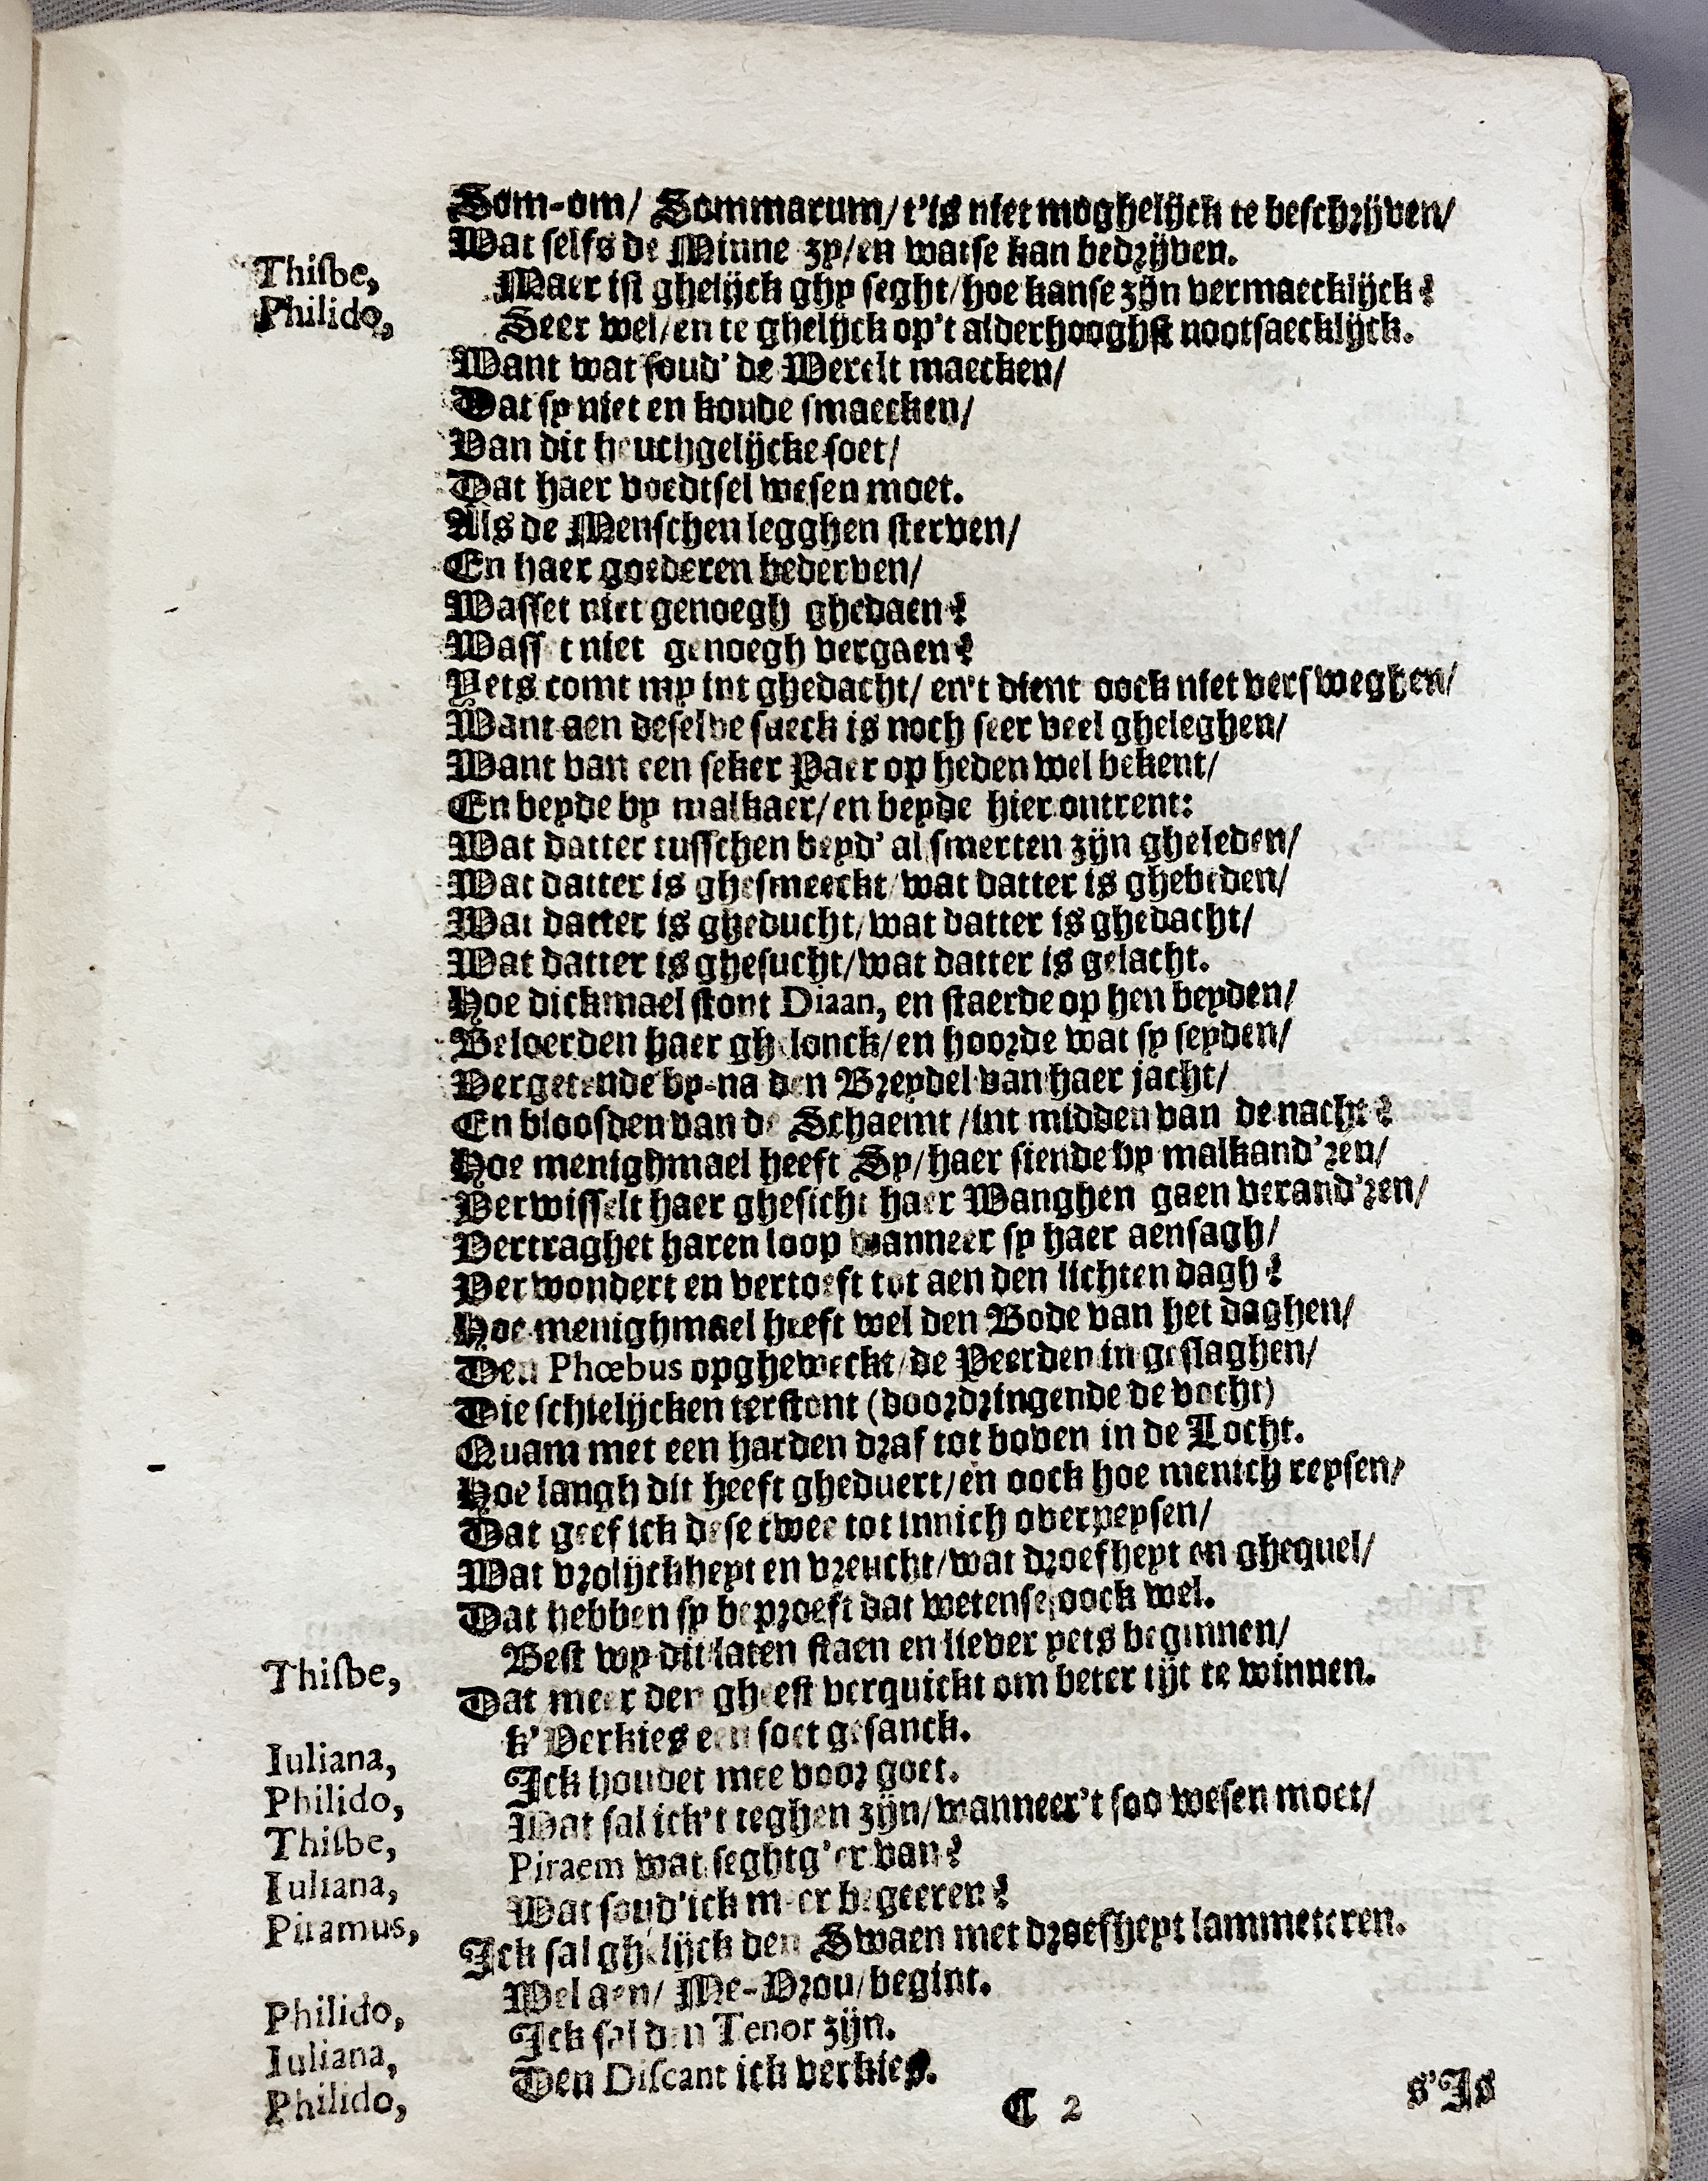 Som-om/ Sommarum/ t'is niet moghelijck te beschrijven/
Wat selfs de Minne zy/ en watse kan bedrijven.
Thisbe, Maer ist ghelijck ghy seght/ hoe kanse zijn vermaecklijck?
Philido, Seer wel/ en te ghelijck op't alderhooghst nootsaecklijck.
Want wat soud' de Werelt maecken/
Dat sy niet en konde smaecken/
Van dit heuchgelijcke soet/
Dat haer voedtsel wesen moet.
Als de Menschen legghen sterven/
En haer goederen bederven/
Wasset niet genoegh ghedaen?
Wasset niet genoegh vergaen?
Yets comt my int ghedacht/ en't dient oock niet versweghen/
Want aen deselve saeck is noch seer veel gheleghen/
Want van een seker Paer op heden wel bekent/
En beyde by malkaer/ en beyde hier ontrent:
Wat datter tusschen beyd' al smerten zijn gheleden/
Wat datter is ghesmeeckt/ wat datter is ghebeden/
Wat datter is gheducht/ wat datter is ghedacht/
Wat datter is ghesucht/ wat datter is gelacht.
Hoe dickmael stont Diaan, en staerde op hen beyden/
Beloerden haer ghelonck/ en hoorde wat sy seyden/
Vergetende by-na den Breydel van haer jacht/
En bloosden van de Schaemt/ int midden van de nacht?
Hoe menighmael heeft Sy/ haer siende by malkand'ren/
Verwisselt haer ghesicht haer Wanghen gaen verand'ren/
Vertraghet haren loop wanneer sy haer aensagh/
Verwondert en vertoeft tot aen den lichten dagh?
Hoe menighmael heeft wel den Bode van het daghen/
Den Phœbus opgheweckt/ de Peerden in geslaghen/
Die schielijcken terstont (doordringende de vocht)
Quam met een harden draf tot boven in de Locht.
Hoe langh dit heeft gheduert/ en oock hoe menich reysen/
Dat geef ick dese twee tot innich overpeysen/
Wat vrolijckheyt en vreucht/ wat droefheyt en ghequel/
Dat hebben sy beproeft dat wetense oock wel.
Thisbe, Best wy dit laten staen en liever yets beginnen/
Dat meer den gheest verquickt om beter tijt te winnen.
Iuliana, k'Verkies een soet gesanck.
Philido, Ick houdet mee voor goet.
Thisbe, Wat sal ick't teghen zijn/ wanneer't soo wesen moet/
Iuliana, Piraem wat seghtg'er van?
Piramus, Wat soud'ick meer begeeren?
Ick sal ghelijck den Swaen met droefheyt lammeteren.
Philido, Wel aen/ Me-Vrou/ begint.
Iuliana, Ick sal den Tenor zijn.
Philido, Den Discant ick verkies.
C 2 s'Is